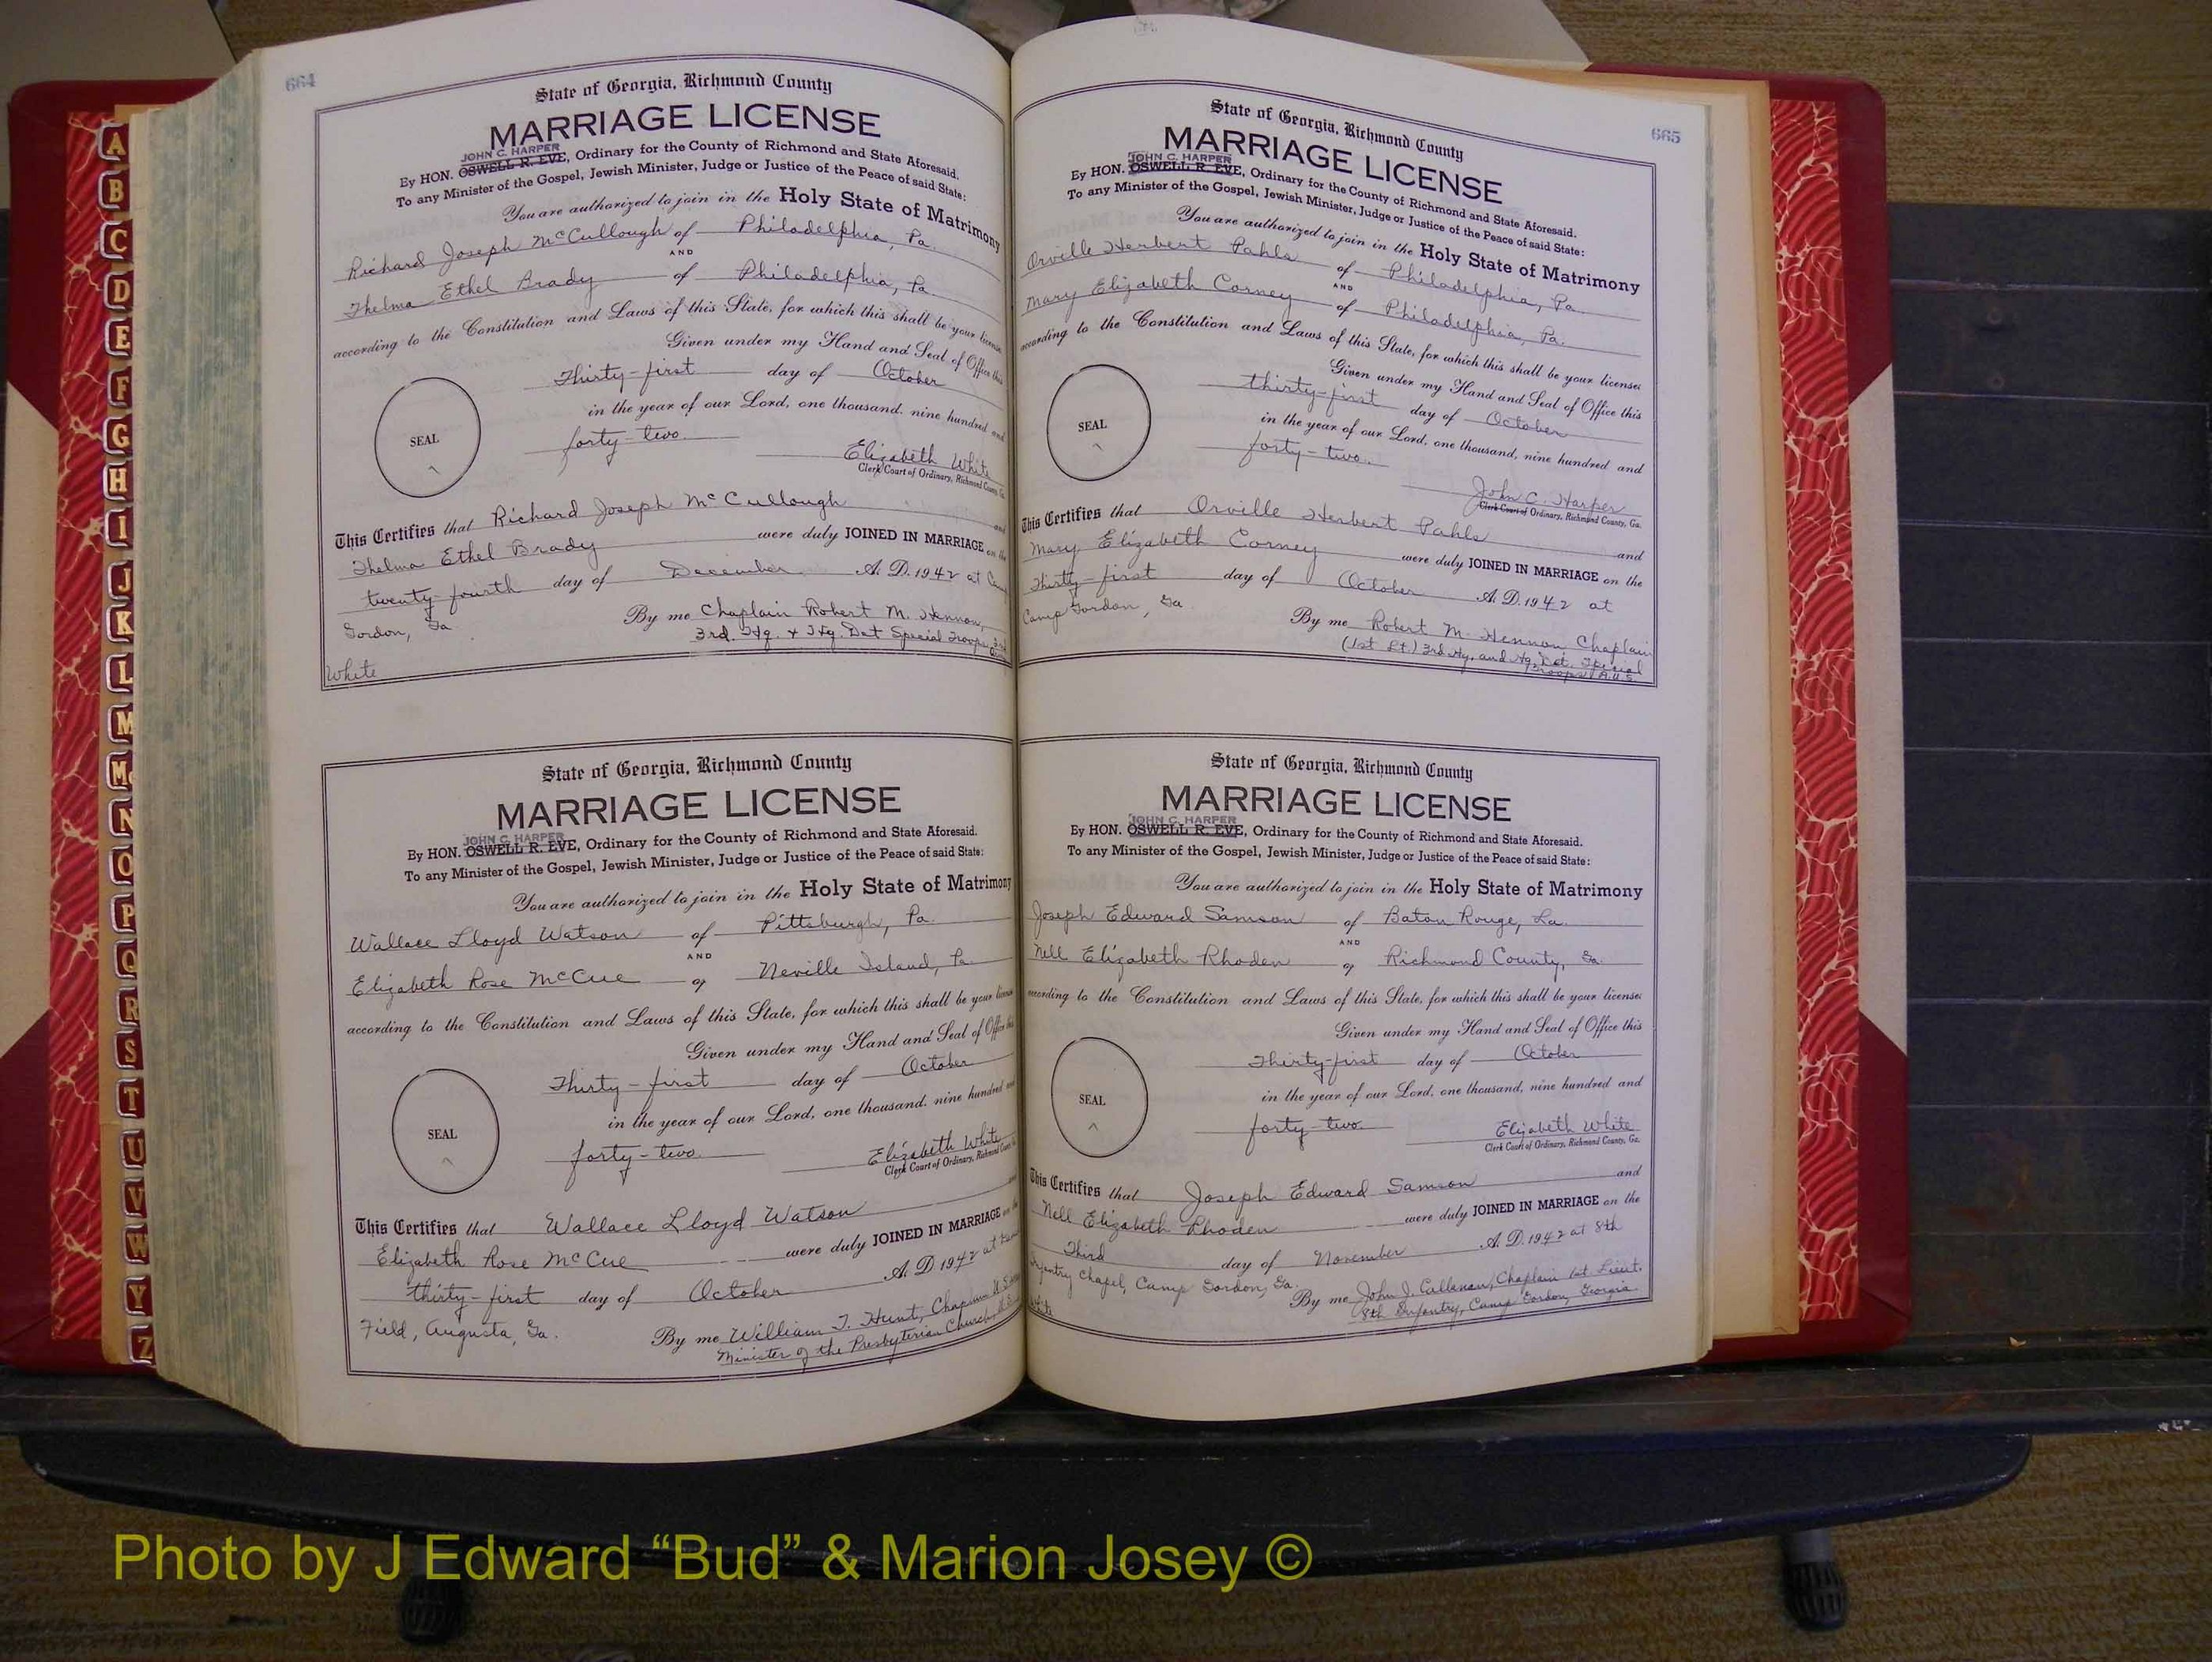 664
State of Georgia, Richmond County
MARRIAGE LICENSE
JOHN C. HARPER
By HON. OSWELL R. EVE, Ordinary for the County of Richmond and State Aforesaid.
To any Minister of the Gospel, Jewish Minister, Judge or Justice of the Peace of said State:
You are authorized to join in the Holy State of Matrimony
Richard Joseph McCullough of Philadelphia, Pa.
AND
Thelma Ethel Brady of Philadelphia, Pa.
according to the Constitution and Laws of this State, for which this shall be your license
Given under my Hand and Seal of Office this
Thirty-first day of October
in the year of our Lord, one thousand, nine hundred and
SEAL
forty-two.
Elizabeth White
Clerk Court of Ordinary, Richmond County, Ga.
This Certifies that Richard Joseph McCullough and
Thelma Ethel Brady were duly JOINED IN MARRIAGE on the
twenty-fourth day of December A. D. 1942 at
Gordon, Ga
By me Chaplain Robert M. Hennon,
3rd. Hq. + Hq. Det Special Troops
White
State of Georgia, Richmond County
MARRIAGE LICENSE
JOHN C. HARPER
By HON. OSWELL R. EVE, Ordinary for the County of Richmond and State Aforesaid.
To any Minister of the Gospel, Jewish Minister, Judge or Justice of the Peace of said State:
You are authorized to join in the Holy State of Matrimony
Wallace Lloyd Watson of Pittsburgh, Pa.
AND
Elizabeth Rose McCue of Neville Island, Pa.
according to the Constitution and Laws of this State, for which this shall be your license
Given under my Hand and Seal of Office this
Thirty-first day of October
in the year of our Lord, one thousand, nine hundred and
SEAL
forty-two.
Elizabeth White
Clerk Court of Ordinary, Richmond County
This Certifies that Wallace Lloyd Watson
Elizabeth Rose McCue were duly JOINED IN MARRIAGE on the
thirty-first day of October A. D. 1942 at
Field, Augusta, Ga.
By me William T. Hunt, Chaplain U.S.
Minister of the Presbyterian Church,
665
State of Georgia, Richmond County
MARRIAGE LICENSE
JOHN C. HARPER
By HON. OSWELL R. EVE, Ordinary for the County of Richmond and State Aforesaid.
To any Minister of the Gospel, Jewish Minister, Judge or Justice of the Peace of said State:
You are authorized to join in the Holy State of Matrimony
Orville Herbert Pahls of Philadelphia, Pa.
AND
Mary Elizabeth Corney of Philadelphia, Pa.
according to the Constitution and Laws of this State, for which this shall be your license:
Given under my Hand and Seal of Office this
thirty-first day of October
in the year of our Lord, one thousand, nine hundred and
SEAL
forty-two.
John C. Harper
Clerk Court of Ordinary, Richmond County, Ga.
This Certifies that Orville Herbert Pahls and
Mary Elizabeth Corney were duly JOINED IN MARRIAGE on the
Thirty-first day of October A. D. 1942 at
Camp Gordon, Ga
By me Robert M. Hennon Chaplain
(1st Lt.) 3rd Hq. and Hq. Det. Special
Troops, A.U.S.
State of Georgia, Richmond County
MARRIAGE LICENSE
JOHN C. HARPER
By HON. OSWELL R. EVE, Ordinary for the County of Richmond and State Aforesaid.
To any Minister of the Gospel, Jewish Minister, Judge or Justice of the Peace of said State:
You are authorized to join in the Holy State of Matrimony
Joseph Edward Samson of Baton Rouge, La.
AND
Nell Elizabeth Rhoden of Richmond County, Ga.
according to the Constitution and Laws of this State, for which this shall be your license:
Given under my Hand and Seal of Office this
Thirty-first day of October
in the year of our Lord, one thousand, nine hundred and
SEAL
forty-two
Elizabeth White
Clerk Court of Ordinary, Richmond County, Ga.
This Certifies that Joseph Edward Samson and
Nell Elizabeth Rhoden were duly JOINED IN MARRIAGE on the
Third day of November A. D. 1942 at 8th
Infantry Chapel, Camp Gordon, Ga.
By me John J. Callanan, Chaplain 1st Lieut.
8th Infantry, Camp Gordon, Georgia
White
A
B
C
D
E
F
G
H
I
J
K
L
M
Mc
N
O
P
Q
R
S
T
U
V
W
Y
Z
Photo by J Edward “Bud” & Marion Josey ©